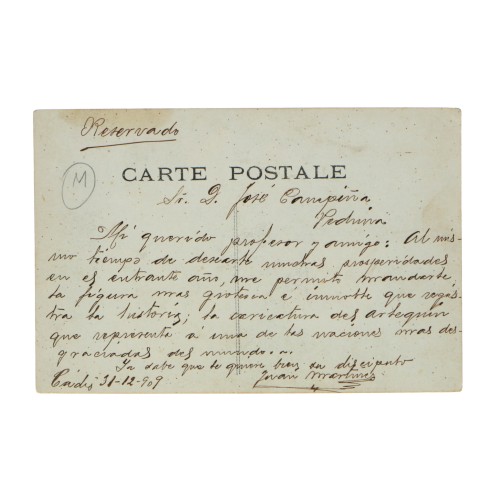 Reservado
M
CARTE POSTALE
Sr. D. José Campiña
Mi querido profesor y amigo: Al mis-
mo tiempo de desearte muchas prosperidades
en el entrante año, me permito mandarte
la figura mas grotesca é innoble que regis-
tra la historia; la caricatura del arlequin
que representa á una de las naciones mas des-
graciadas del mundo...
Ya sabe que te quiere bien su discipulo
Cádiz 31-12-909 Juan Martinez